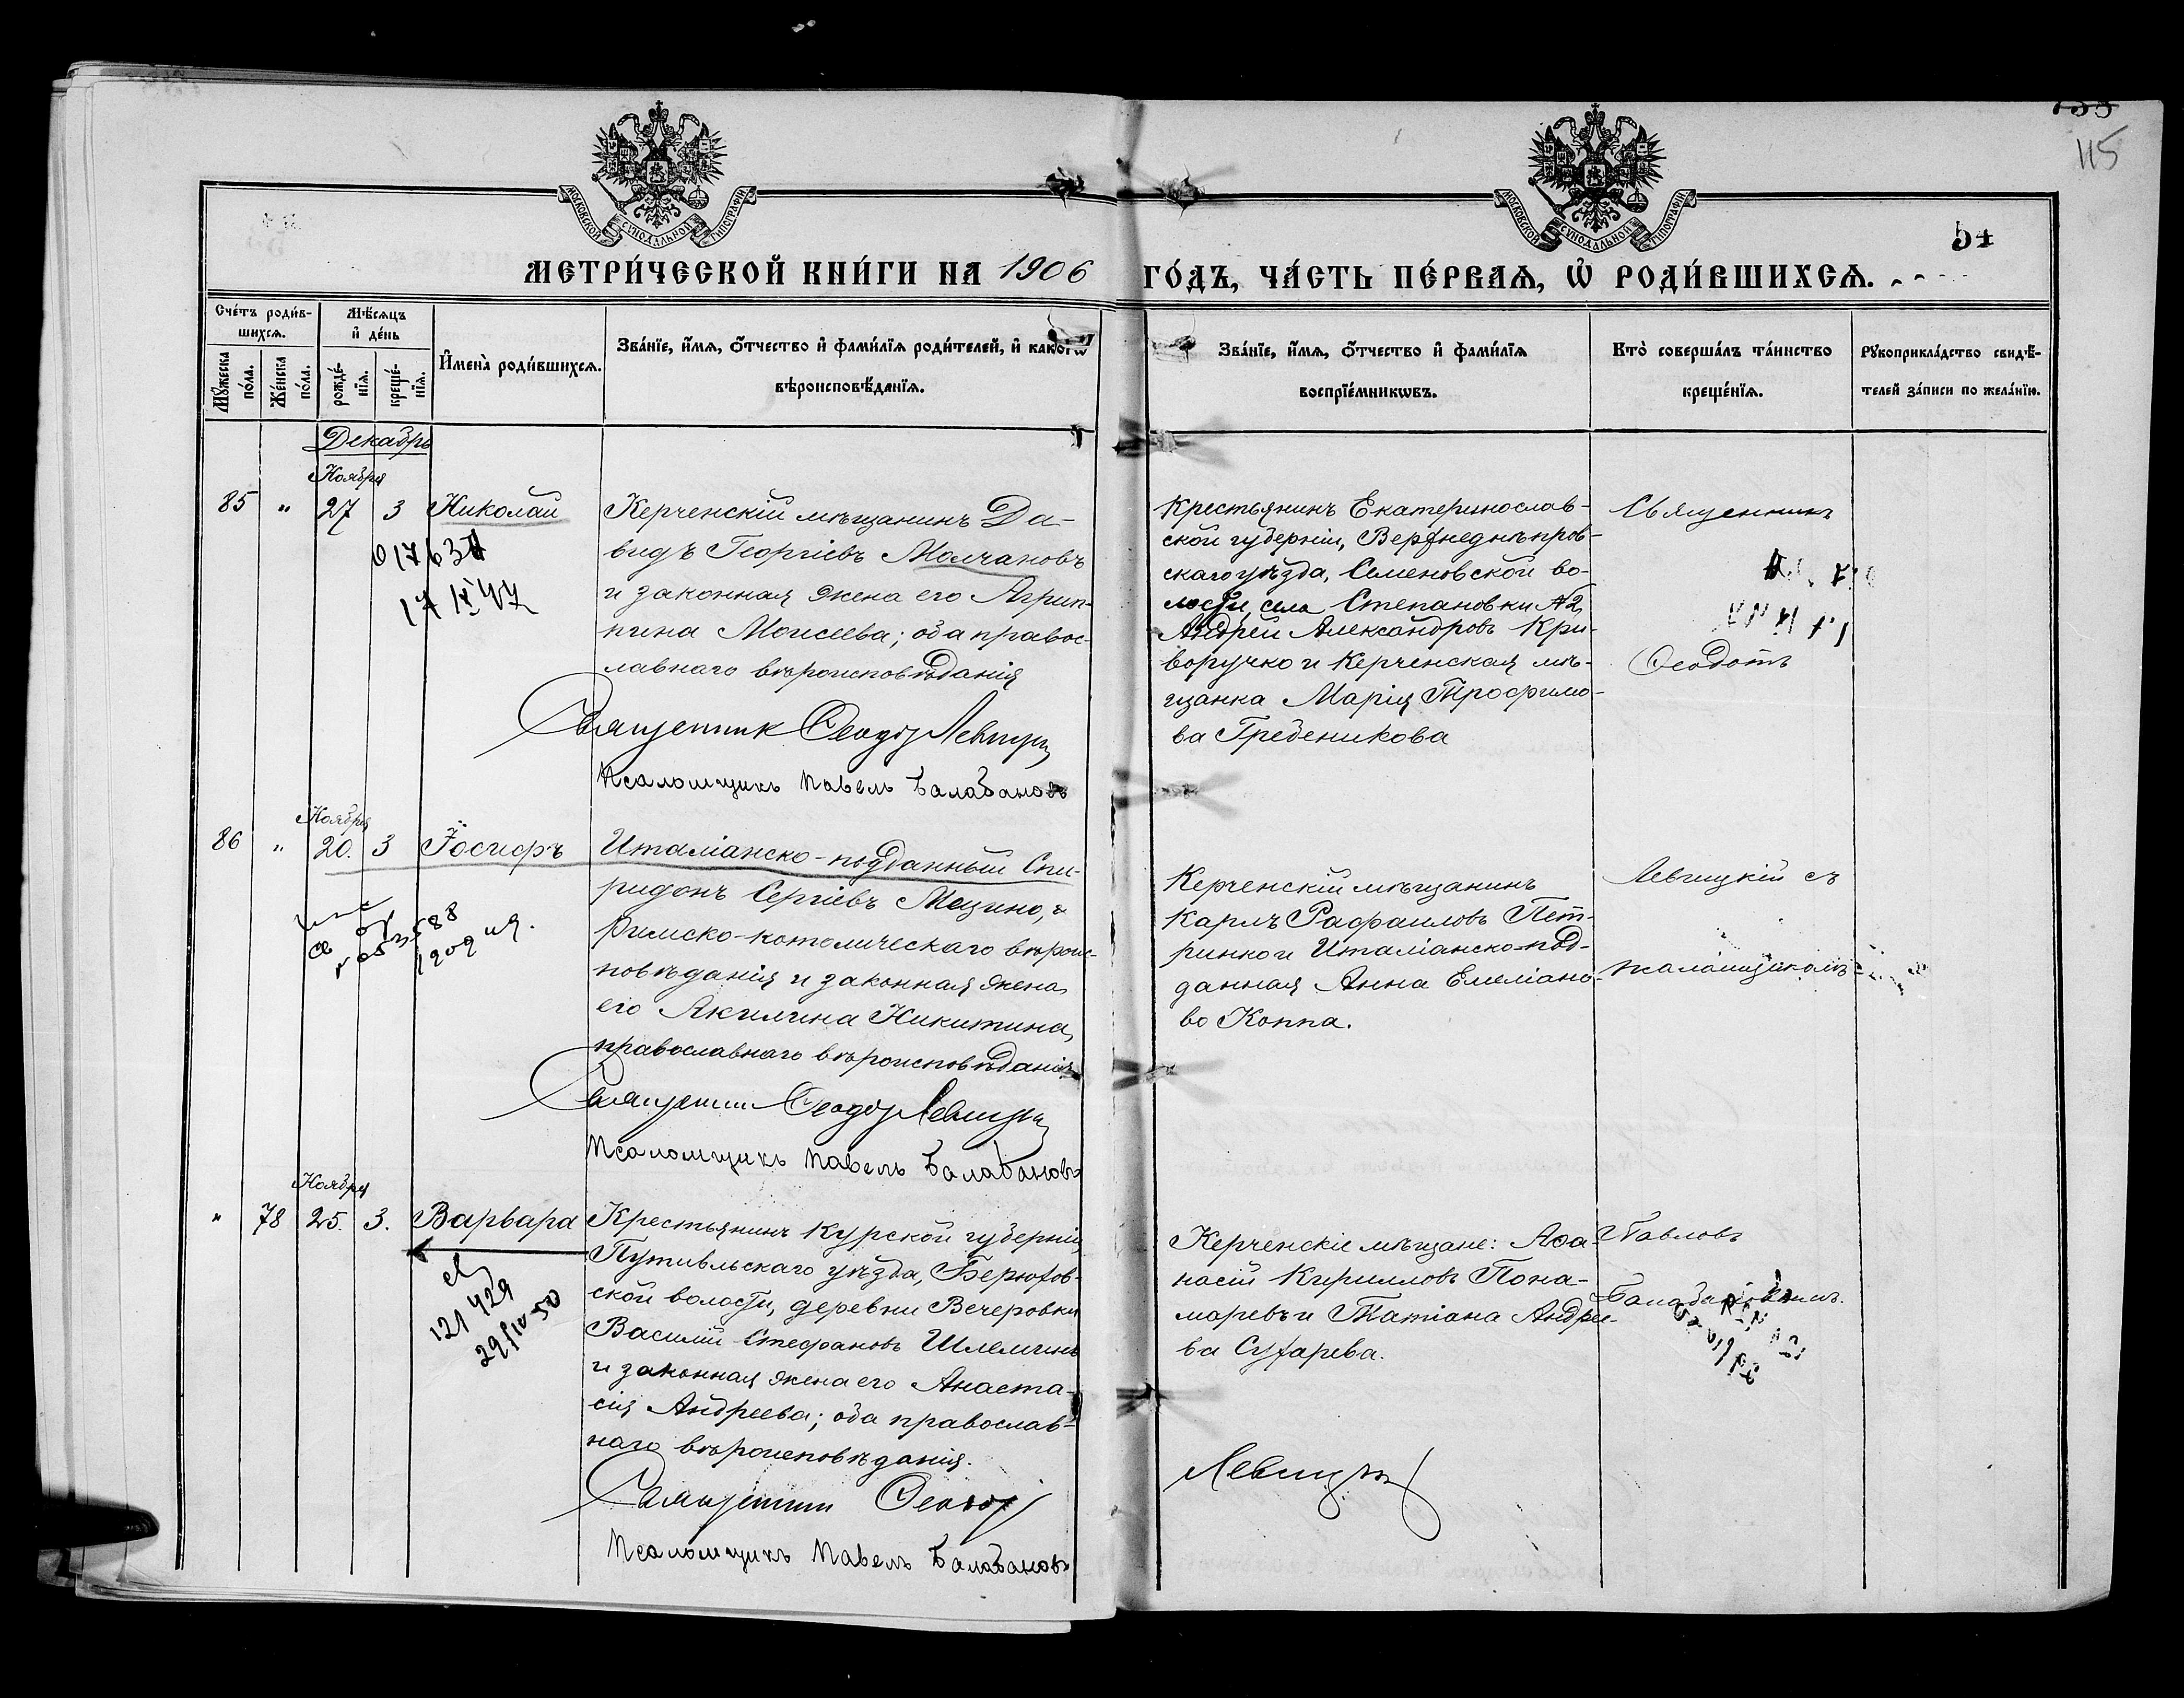 135
115
МОСКОВСКОЙ СѴНОДАЛЬНОЙ ТИПОГРАФІИ
МОСКОВСКОЙ СѴНОДАЛЬНОЙ ТИПОГРАФІИ
54
МЕТРИ́ЧЕСКОЙ КНИ́ГИ НА 1906 ГО́ДЪ, ЧА́СТЬ ПЕ́РВАѦ, Ѡ҆ РОДИ́ВШИХСѦ.
Сче́тъ роди́в-
шихсѧ.
Мꙋ́жеска по́ла.
Же́нска по́ла.
Мѣ́сѧцъ
и҆ де́нь
рожде́-
нїѧ.
креще́-
нїѧ.
И҆мена̀ роди́вшихсѧ.
Зва́нїе, и҆́мѧ, ѻ҆́тчество и҆ фами́лїѧ роди́телей, и҆ како́гѡ
вѣроисповѣ́данїѧ.
Зва́нїе, и҆́мѧ, ѻ҆́тчество и҆ фами́лїѧ
воспрїе́мникѡвъ.
Кто̀ соверша́лъ та́инство
креще́нїѧ.
Рꙋкоприкла́дство свидѣ́-
телей за́писи по жела́нїю.
Декабрь
Ноября
85 " 27 3 Николай
01763
17 IX 47
Керченскій мѣщанинъ Да-
видъ Георгіевъ Молчановъ
и законная жена его Агрип-
пина Моисеева; оба правос-
лавнаго вѣроисповѣданія
Священник Ѳеодор Левицкій
Псаломщикъ Павелъ Балабановъ
Крестьянинъ Екатеринослав-
ской губерніи, Верхнеднѣпров-
скаго уѣзда, Семеновской во-
лости, села Степановки №2,
Андрей Александровъ Кри-
воручко и Керченская мѣ-
щанка Марія Трофимо-
ва Гребеникова
Священникъ
Ѳеодотъ
Ноября
86 " 20. 3 Іосифъ
588
1909
Италіанско-подданный Спи-
ридонъ Сергіевъ Мацино,
Римско-католическаго вѣроис-
повѣданія и законная жена
его Акилина Никитина,
православнаго вѣроисповѣданія
Священник Ѳеодор Левицкій
Псаломщикъ Павелъ Балабановъ
Керченскій мѣщанинъ
Карлъ Рафаиловъ Пет-
ринко и Италіанско-под-
данная Анна Емеліано-
во Коппа.
Левицкій съ
псаломщикомъ
Ноября
" 78 25. 3. Варвара
св
121429
29/IV-50
Крестьянинъ Курской губерніи,
Путивльскаго уѣзда, Берюхов-
ской волости, деревни Вечеровки
Василій Стефановъ Шлеминъ
и законная жена его Анаста-
сія Андреева; оба православ-
наго вѣроисповѣданія.
Священник Ѳеодор
Левицкій
Псаломщикъ Павелъ Балабановъ
Керченскіе мѣщане: Аѳа-
насій Кирилловъ Пона-
маревъ и Татіана Андрее-
ва Сухарева.
Павловъ
Балабановымъ.